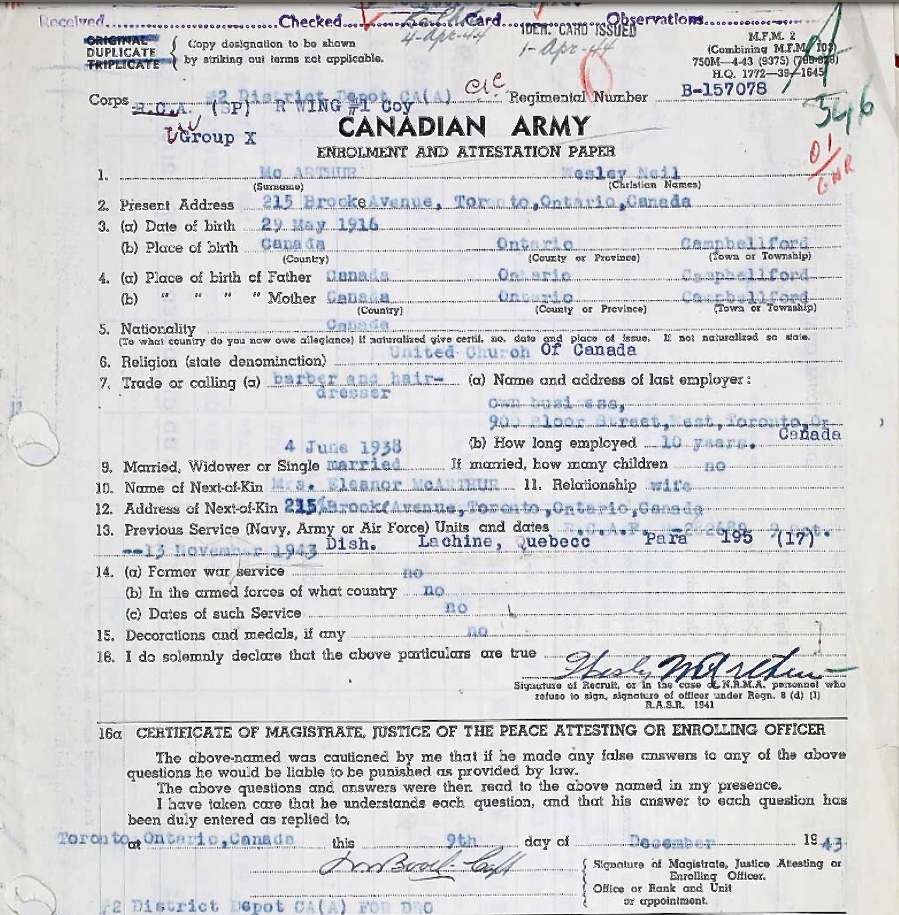 Received Checked Card Observations
4-Apr-44 IDEN. CARD ISSUED
1-Apr-44
ORIGINAL
DUPLICATE
TRIPLICATE
Copy designation to be shown
by striking out terms not applicable.
M.F.M. 2
(Combining M.F.M. 103)
750M—4-43 (9375)
H.Q. 1772—39—1645
546
01/
GNR
CIC
#2 District Depot CA(A)
Corps R.C.A. (SP) R WING #1 Coy Regimental Number B-157078
Group X
CANADIAN ARMY
ENROLMENT AND ATTESTATION PAPER
1. Mc ARTHUR Wesley Neil
(Surname) (Christian Names)
2. Present Address 215 Brooke Avenue, Toronto,Ontario,Canada
3. (a) Date of birth 29 May 1916
(b) Place of birth Canada Ontario Campbellford
(Country) (County or Province) (Town or Township)
4. (a) Place of birth of Father Canada Ontario Campbellford
(b) " " " " Mother Canada Ontario Campbellford
(Country) (County or Province) (Town or Township)
5. Nationality Canada
(To what country do you now owe allegiance) If naturalized give certif. no. date and place of issue. If not naturalized so state.
6. Religion (state denomination) United Church Of Canada
7. Trade or calling (a) barber and hair-
dresser
(a) Name and address of last employer:
own business,
Bloor Street, Toronto,
Canada
4 June 1938 (b) How long employed 10 years.
9. Married, Widower or Single married If married, how many children no
10. Name of Next-of-Kin Mrs. Eleanor McARTHUR 11. Relationship wife
12. Address of Next-of-Kin 215 Brooke Avenue,Toronto,Ontario,Canada
13. Previous Service (Navy, Army or Air Force) Units and dates R.C.A.F.
--13 November 1943 Dish. Lachine, Quebecc Para 195 (17).
14. (a) Former war service no
(b) In the armed forces of what country no
(c) Dates of such Service no
15. Decorations and medals, if any no
16. I do solemnly declare that the above particulars are true Wesley McArthur
Signature of Recruit, or in the case of N.R.M.A. personnel who
refuse to sign, signature of officer under Regn. 8 (d) (1)
R.A.S.R. 1941
16a CERTIFICATE OF MAGISTRATE, JUSTICE OF THE PEACE ATTESTING OR ENROLLING OFFICER
The above-named was cautioned by me that if he made any false answers to any of the above
questions he would be liable to be punished as provided by law.
The above questions and answers were then read to the above named in my presence.
I have taken care that he understands each question, and that his answer to each question has
been duly entered as replied to,
at Toronto,Ontario,Canada this 9th day of December 1943
Signature of Magistrate, Justice Attesting or
Enrolling Officer.
Office or Rank and Unit
or appointment.
#2 District Depot CA(A) FOR DRO